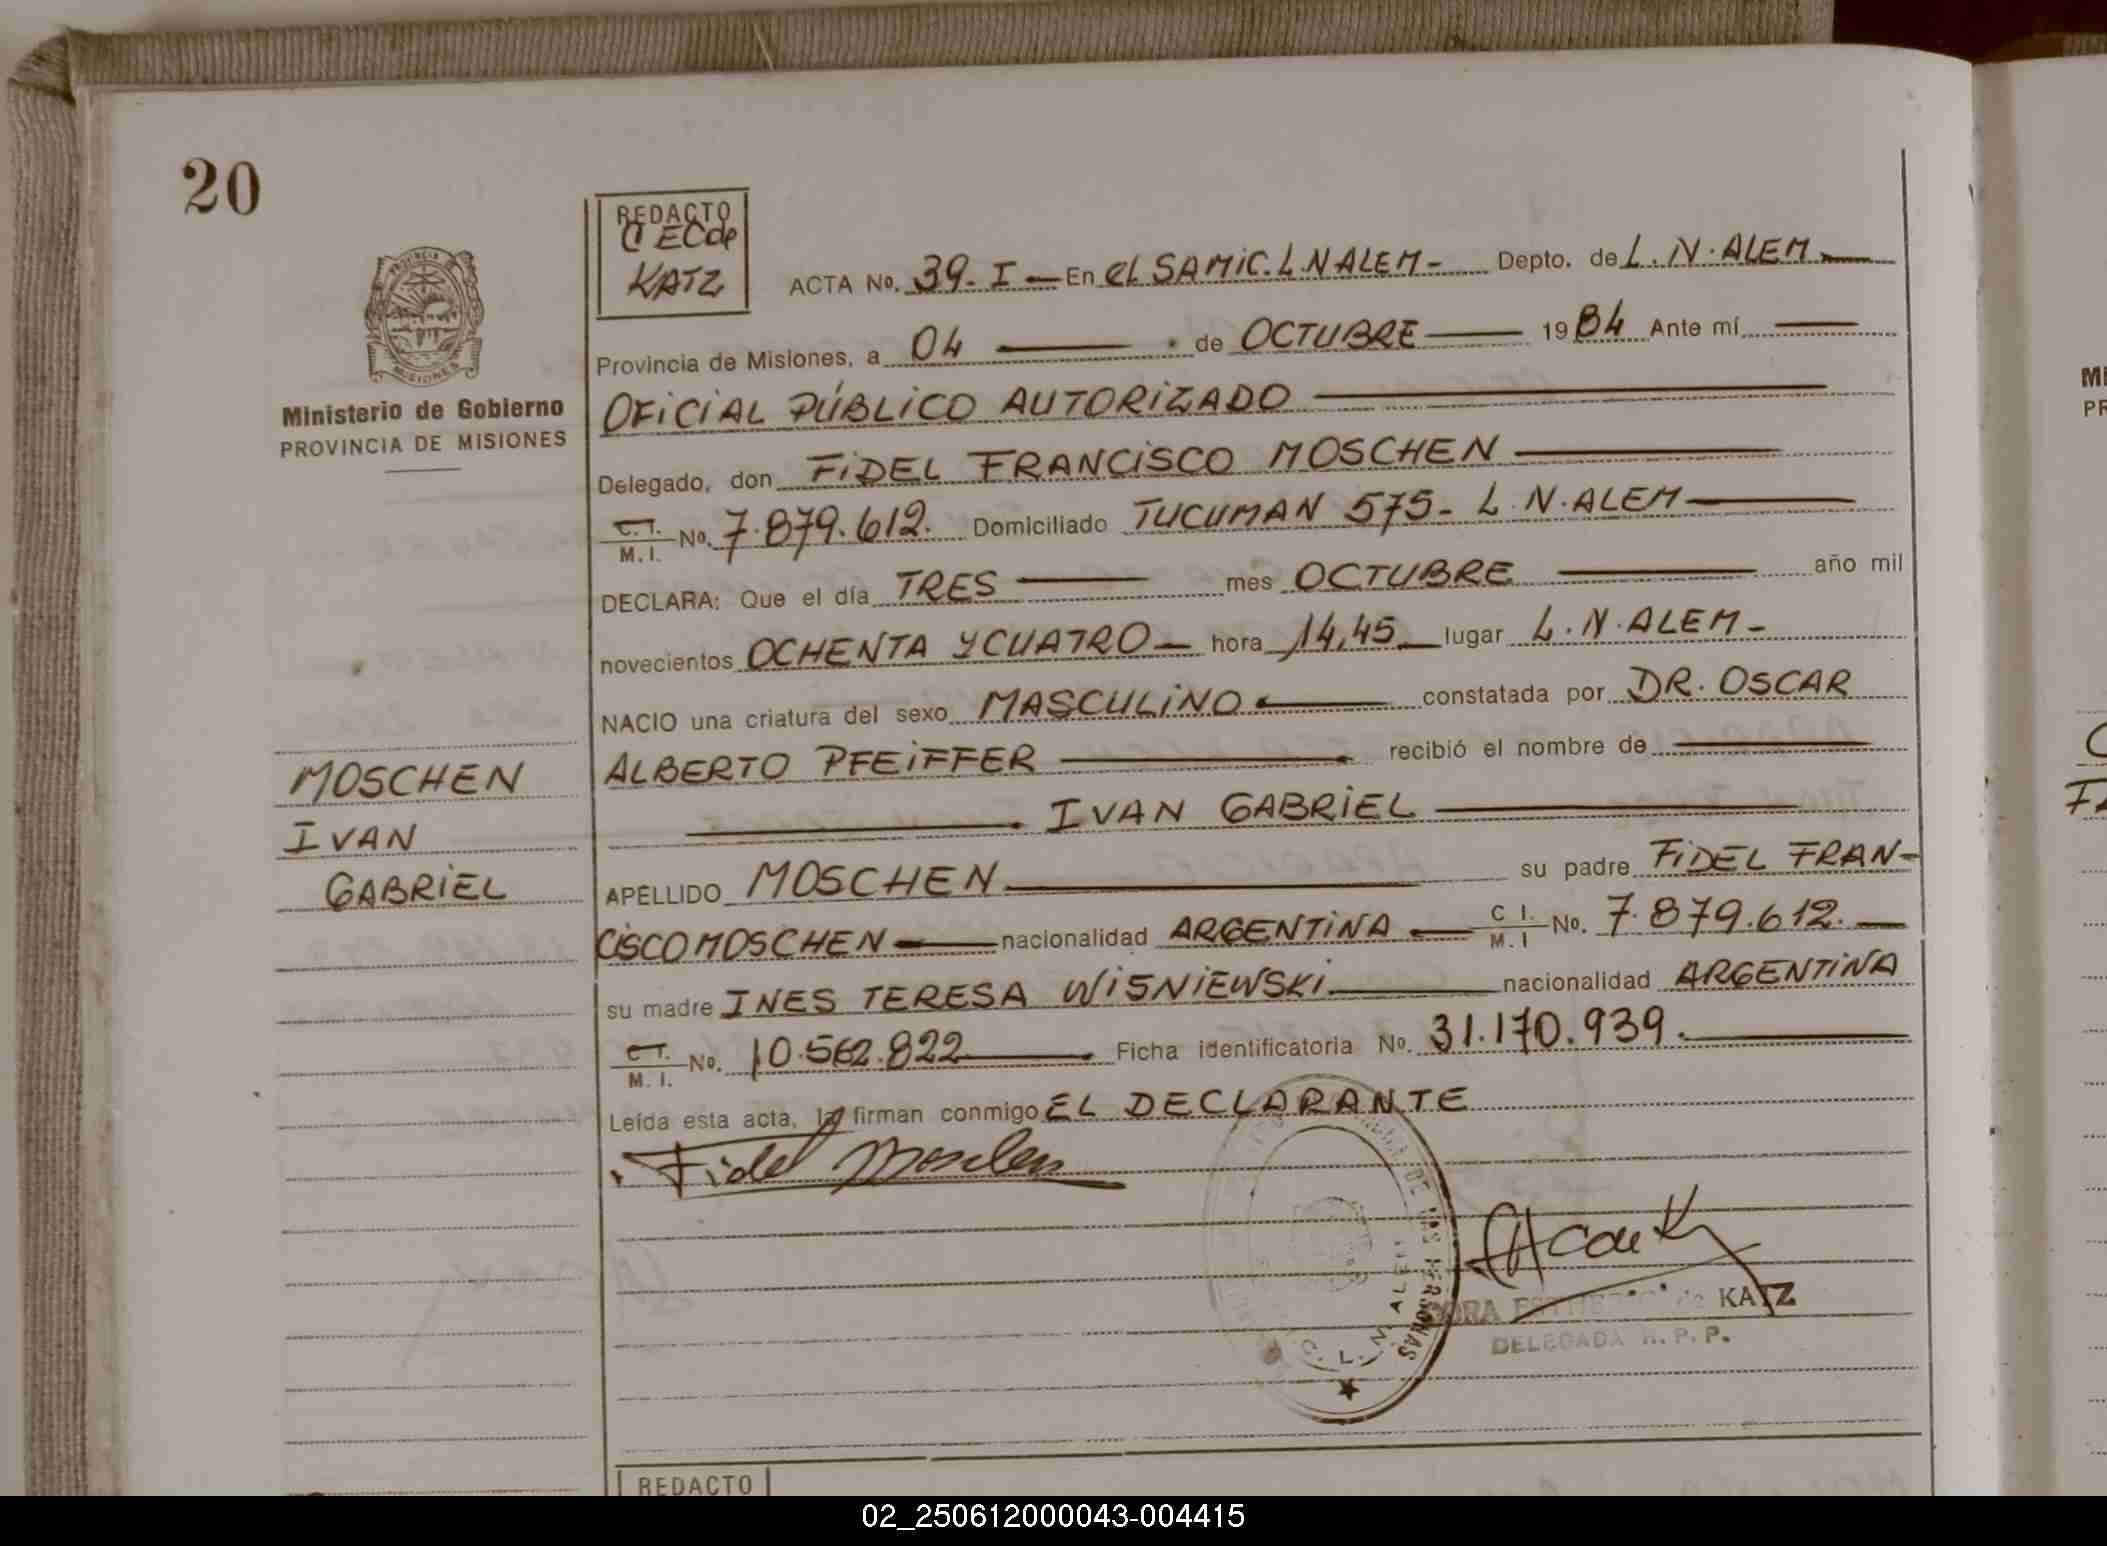 20
REDACTO
KATZ
ACTA No. 39-I — En EL SAMIC. L.N ALEM - Depto. de L. N. ALEM
Provincia de Misiones, a 04 de OCTUBRE 1984 Ante mí
OFICIAL PÚBLICO AUTORIZADO
Ministerio de Gobierno
PROVINCIA DE MISIONES
Delegado, don FIDEL FRANCISCO MOSCHEN
C.I. / M.I. No. 7.879.612. Domiciliado TUCUMAN 575 - L. N. ALEM
DECLARA: Que el día TRES mes OCTUBRE año mil
novecientos OCHENTA Y CUATRO hora 14,45 lugar L. N. ALEM -
NACIO una criatura del sexo MASCULINO constatada por DR. OSCAR
ALBERTO PFEIFFER recibió el nombre de
IVAN GABRIEL
MOSCHEN
IVAN
GABRIEL
APELLIDO MOSCHEN su padre FIDEL FRAN-
CISCO MOSCHEN nacionalidad ARGENTINA C I. / M. I No. 7.879.612.
su madre INES TERESA WISNIEWSKI nacionalidad ARGENTINA
C.I. / M. I. No. 10.562.822 Ficha identificatoria No. 31.170.939.
Leída esta acta, la firman conmigo EL DECLARANTE
Fidel Moschen
DE LAS PERSONAS
L. N. ALEM
de KATZ
DELEGADA R. P. P.
REDACTO
02_250612000043-004415